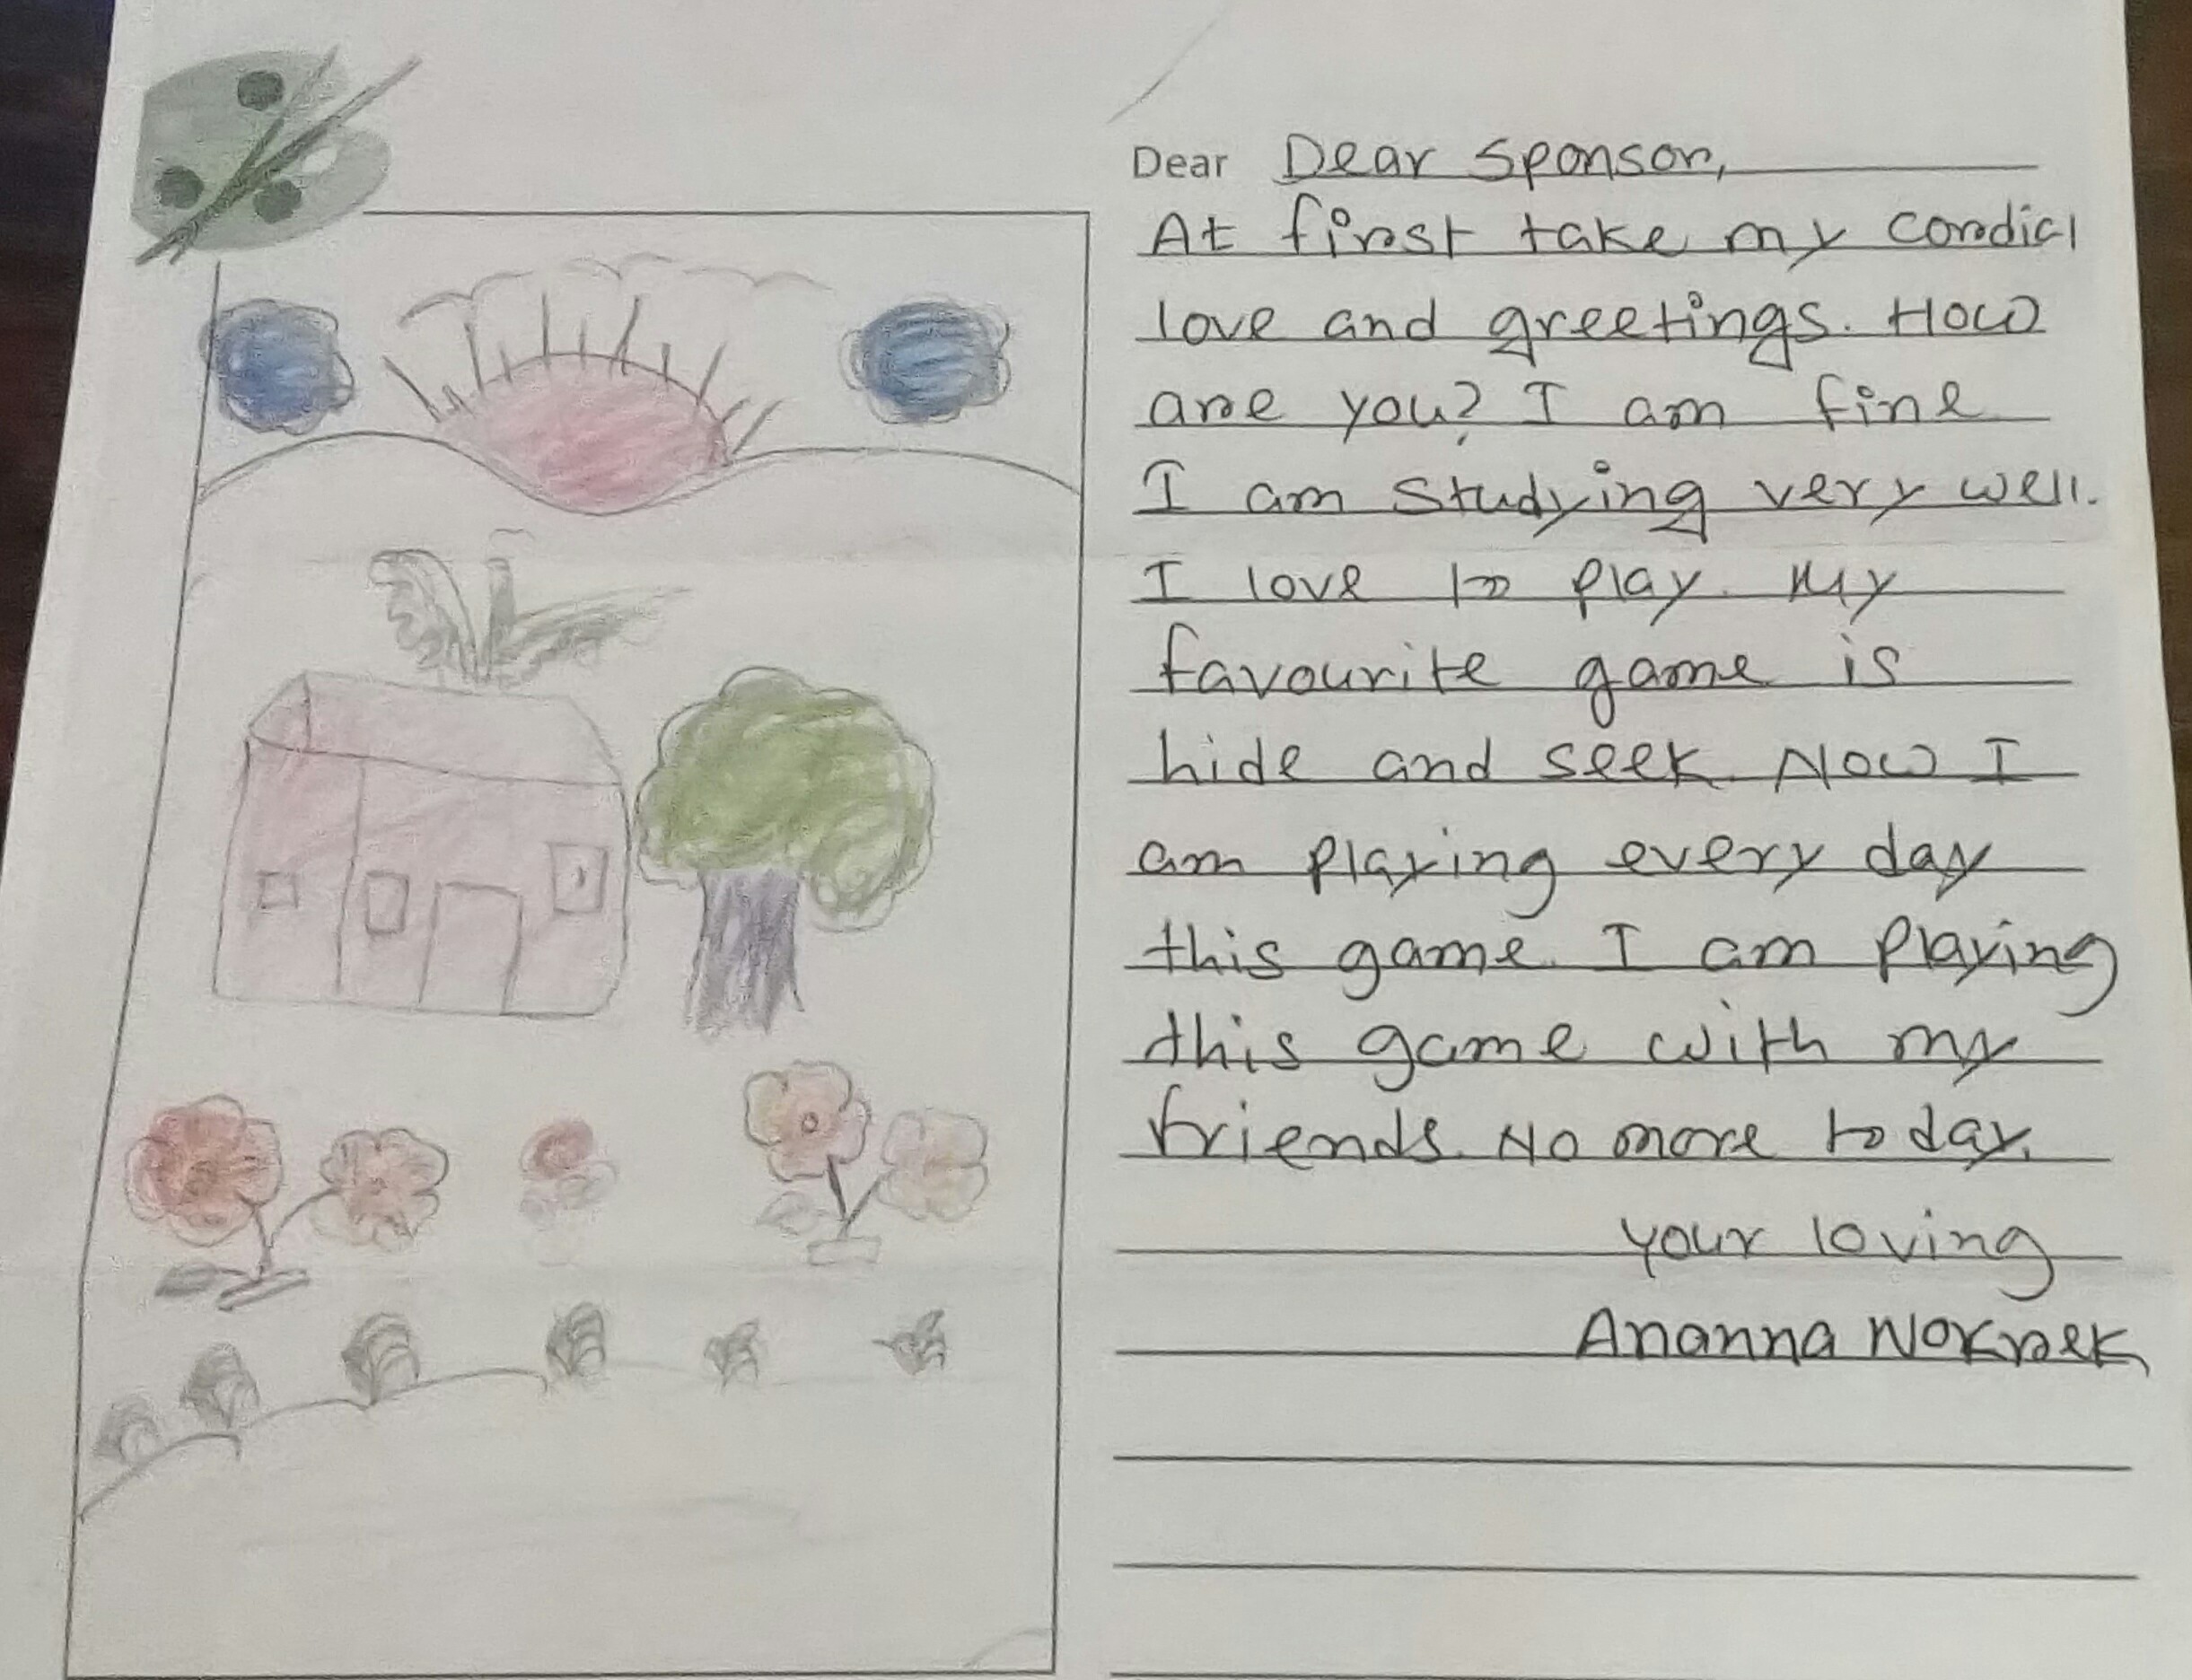 Dear Dear Sponsor,
At first take my cordial
love and greetings. How
are you? I am fine
I am studying very well.
I love to play. My
favourite game is
hide and seek. Now I
am playing every day
this game. I am playing
this game with my
friends. No more today.
your loving
Ananna Nokrek